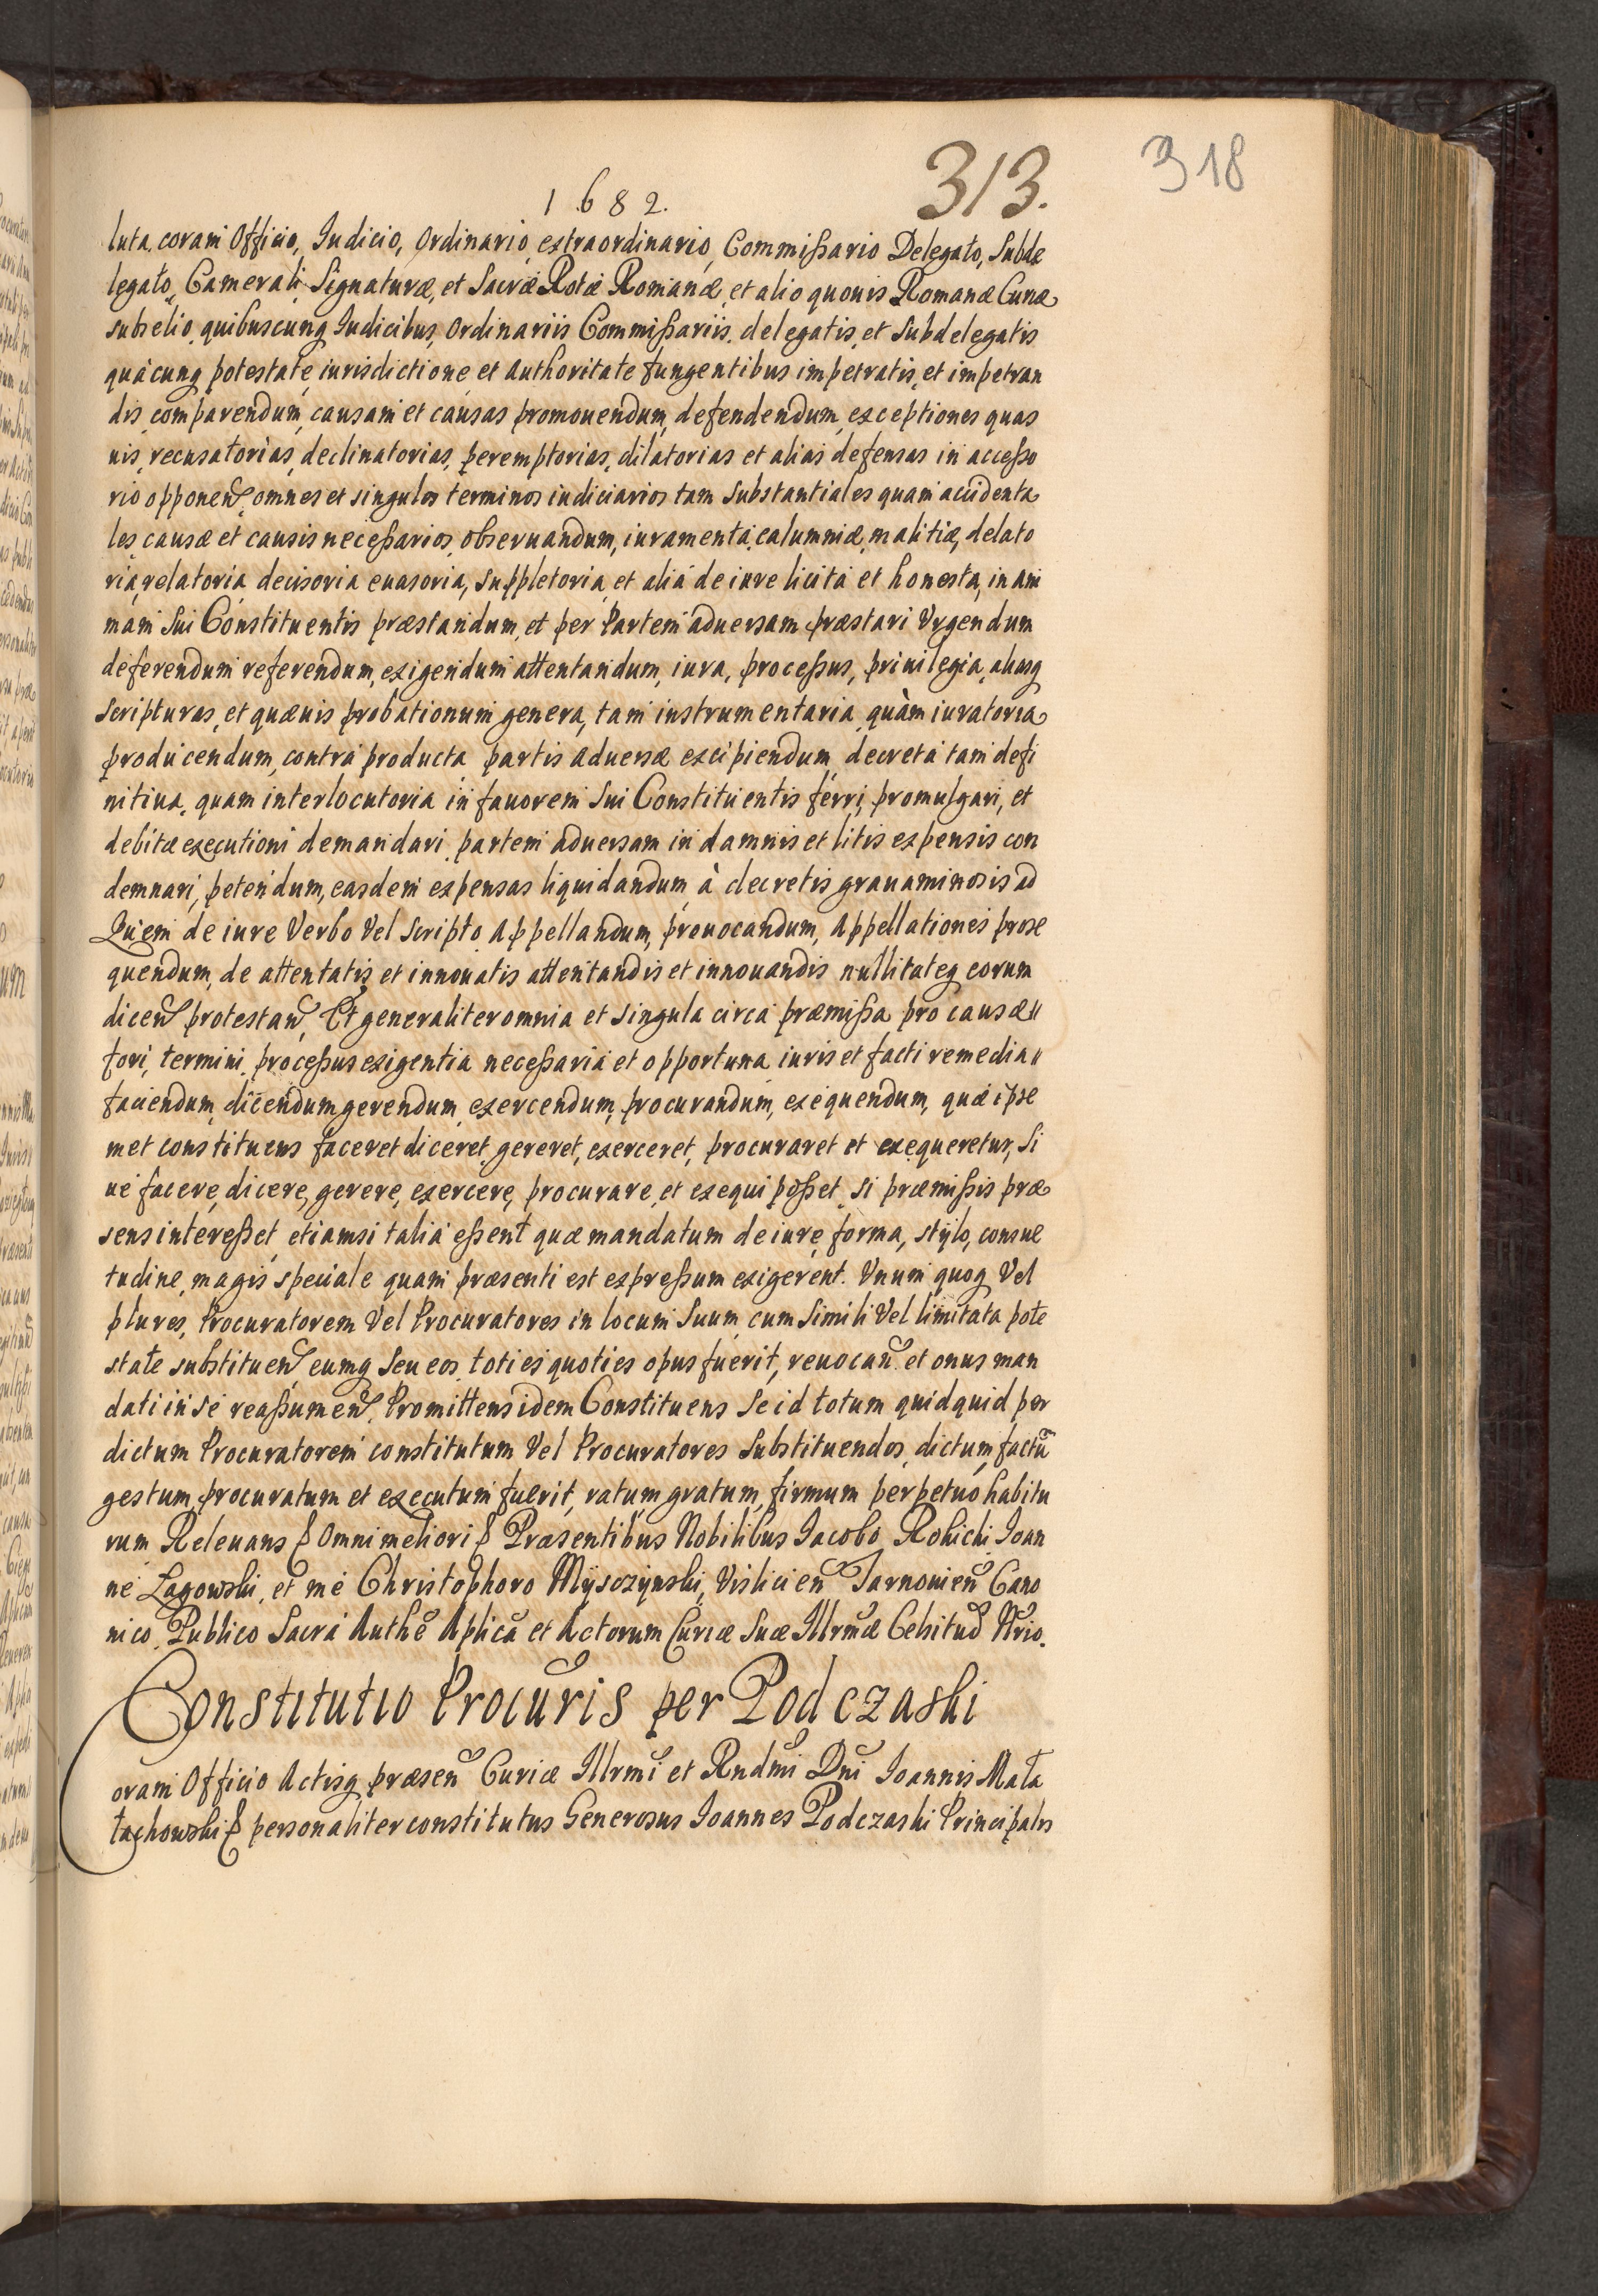 1682.
313.
318
luta, coram Officio, Iudicio, Ordinario, extraordinario, Commißario Delegato, Subde
legato, Camerali Signaturæ, et Sacræ Rotæ Romanæ, et alio quouis Romanæ Curiæ
subselio, quibuscunq Iudicibus, Ordinariis Commißariis, delegatis, et Subdelegatis
quacunq potestate, iurisdictione et Authoritate fungentibus impetratis, et impetran
dis, comparendum, causam et causas promouendum, defendendum, exceptiones quas
uis, recusatorias, declinatorias, peremptorias, dilatorias et alias defensas in acceßo
rio opponen, omnes et singulos terminos iudiciarios tam Substantiales quam accidenta
les causæ et causis neceßarios, obseruandum, iuramenta, calumniæ, malitiæ, delato
ria, relatoria, decisoria euasoria, Suppletoria, et alia de iure licita et honesta, in ani
mam Sui Constituentis præstandum, et per Partem aduersam præstari Vrgendum
deferendum referendum, exigendum attentandum, iura, proceßus, priuilegia, aliasq
Scripturas, et quæuis probationum genera, tam instrumentaria, quàm iuratoria
producendum, contra producta partis Aduersæ excipiendum, decreta tam defi
nitiua, quam interlocutoria in fauorem Sui Constituentis ferri, promulgari, et
debitæ executioni demandari, partem aduersam in damnis et litis expensis con
demnari, petendum, easdem expensas liquidandum, à decretis grauaminosis ad
Quem de iure Verbo Vel Scripto Appellandum, prouocandum, Appellationes prose
quendum, de attentatis et innouatis attentandis et innouandis nullitateq eorum
dicen protestan, Et generaliter omnia et singula circa præmißa pro causæ
fori, termini, proceßus exigentia neceßaria et opportuna iuris et facti remedia
faciendum, dicendum gerendum, exercendum, procurandum, exequendum, quæ ipse
met constituens faceret diceret, gereret, exerceret, procuraret et exequeretur, Si
ue facere, dicere, gerere, exercere, procurare, et exequi poßet, Si præmißis præ
sens intereßet, etiamsi talia eßent quæ mandatum de iure, forma, stylo, consue
tudine, magis speciale quam præsenti est expreßum exigerent. Vnum quoq Vel
plures, Procuratorem Vel Procuratores in locum Suum, cum Simili Vel limitata pote
state substituen, eumq Seu eos, toties quoties opus fuerit, reuocan et onus man
dati in se reaßumen, Promittens idem Constituens Se id totum quidquid per
dictum Procuratorem constitutum Vel Procuratores Substituendos, dictum, factũ
gestum, procuratum et executum fuerit, ratum, gratum, firmum perpetuo habitu
rum Releuans & Omni meliori & Præsentibus Nobilibus Iacobo Rokicki Ioan
ne Łagowski, et me Christophoro Myszczynski, Vislicien Tarnouien Cano
nico, Publico Sacra Authẽ Aplica et Actorum Curiæ Suæ Illrmæ Celsitud Nrio.
Constitutio Procuris per Podczaski
oram Officio Actisq præsen Curiæ Illrmi et Rndmi Dni Ioannis Mała
łachowski & personaliter constitutus Generosus Ioannes Podczaski Principalis